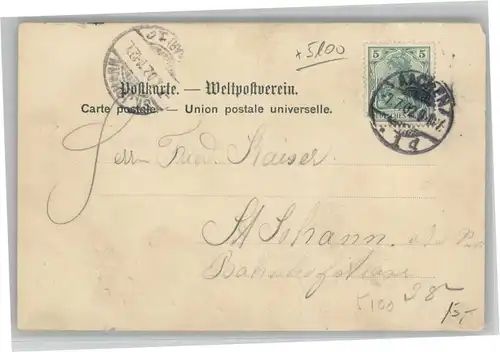 + 5,00
5
AACHEN
1 q
Postkarte. — Weltpostverein.
Carte postale. — Union postale universelle.
Herrn Fried. Kaiser
St Johann
Bahnhofstrasse
K100 98